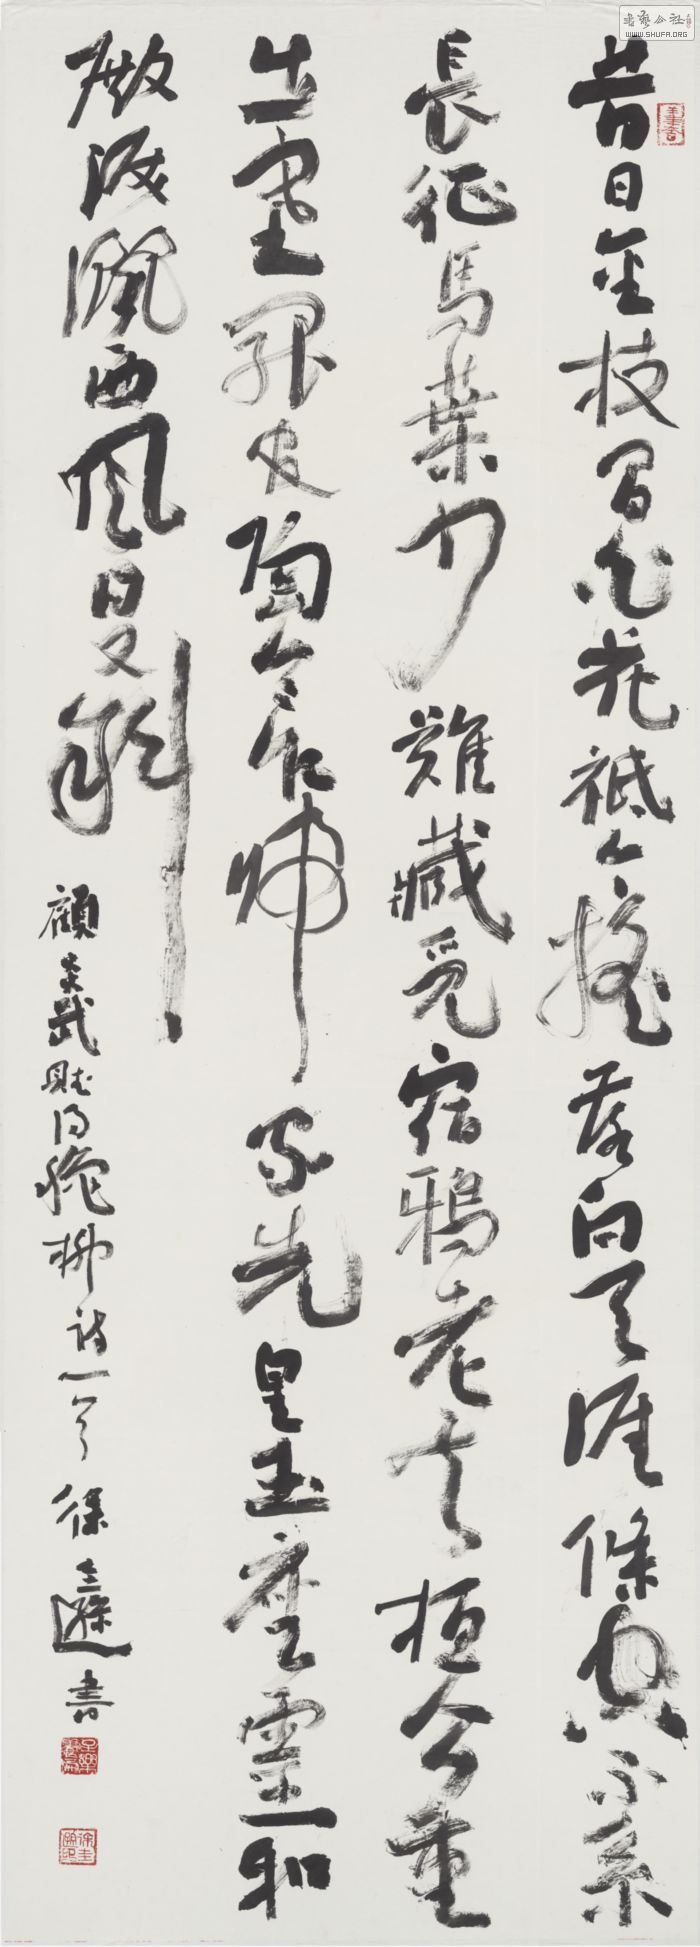 書藝公社
WWW.SHUFA.ORG
昔日金枝間白花祗今搖落向天涯條空不系
長征馬葉少難藏覓宿鴉老去桓公重
出塞罷官陶令乍歸家先皇玉座靈和
殿淚灑西風日又斜 顧炎武賦得秋柳詩一首 徐圭遜書